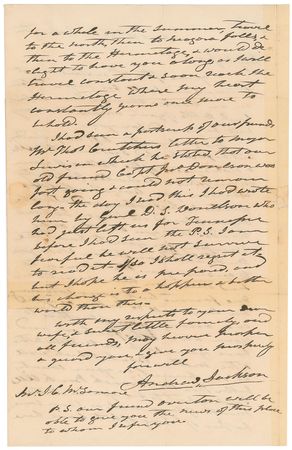 for a while in the summer, travel
to the north, then to Niagara falls &
then to the Hermitage, & would de-
light to have you along as I will
travel constantly soon reach the
Hermitage where my heart
constantly yearns once more to
behold.
I had seen a postscript of our friend,
Mr Thos Crutchers letter to Major
Lewis in which he stated that our
old friend Capt Jno Donelson was
fast going & could not survive
long. the day I read this I had wrote
him by Genl D. S. Donelson who
had just left us for Tennessee
before I had seen the P.S. I am
fearful he will not survive
to read it. If so I shall regret it
but I hope he is prepared, and
his change is to a happier & better
world than this.
with my respects to you dear
wife, & sweet little family and
all friends, may heaven prosper
& guard you & give you prosperity
farewell
Andrew Jackson
Mr J. C. McLemore
P.S. our friend overton will be
able to give you the news of this place
to whom I refer you.